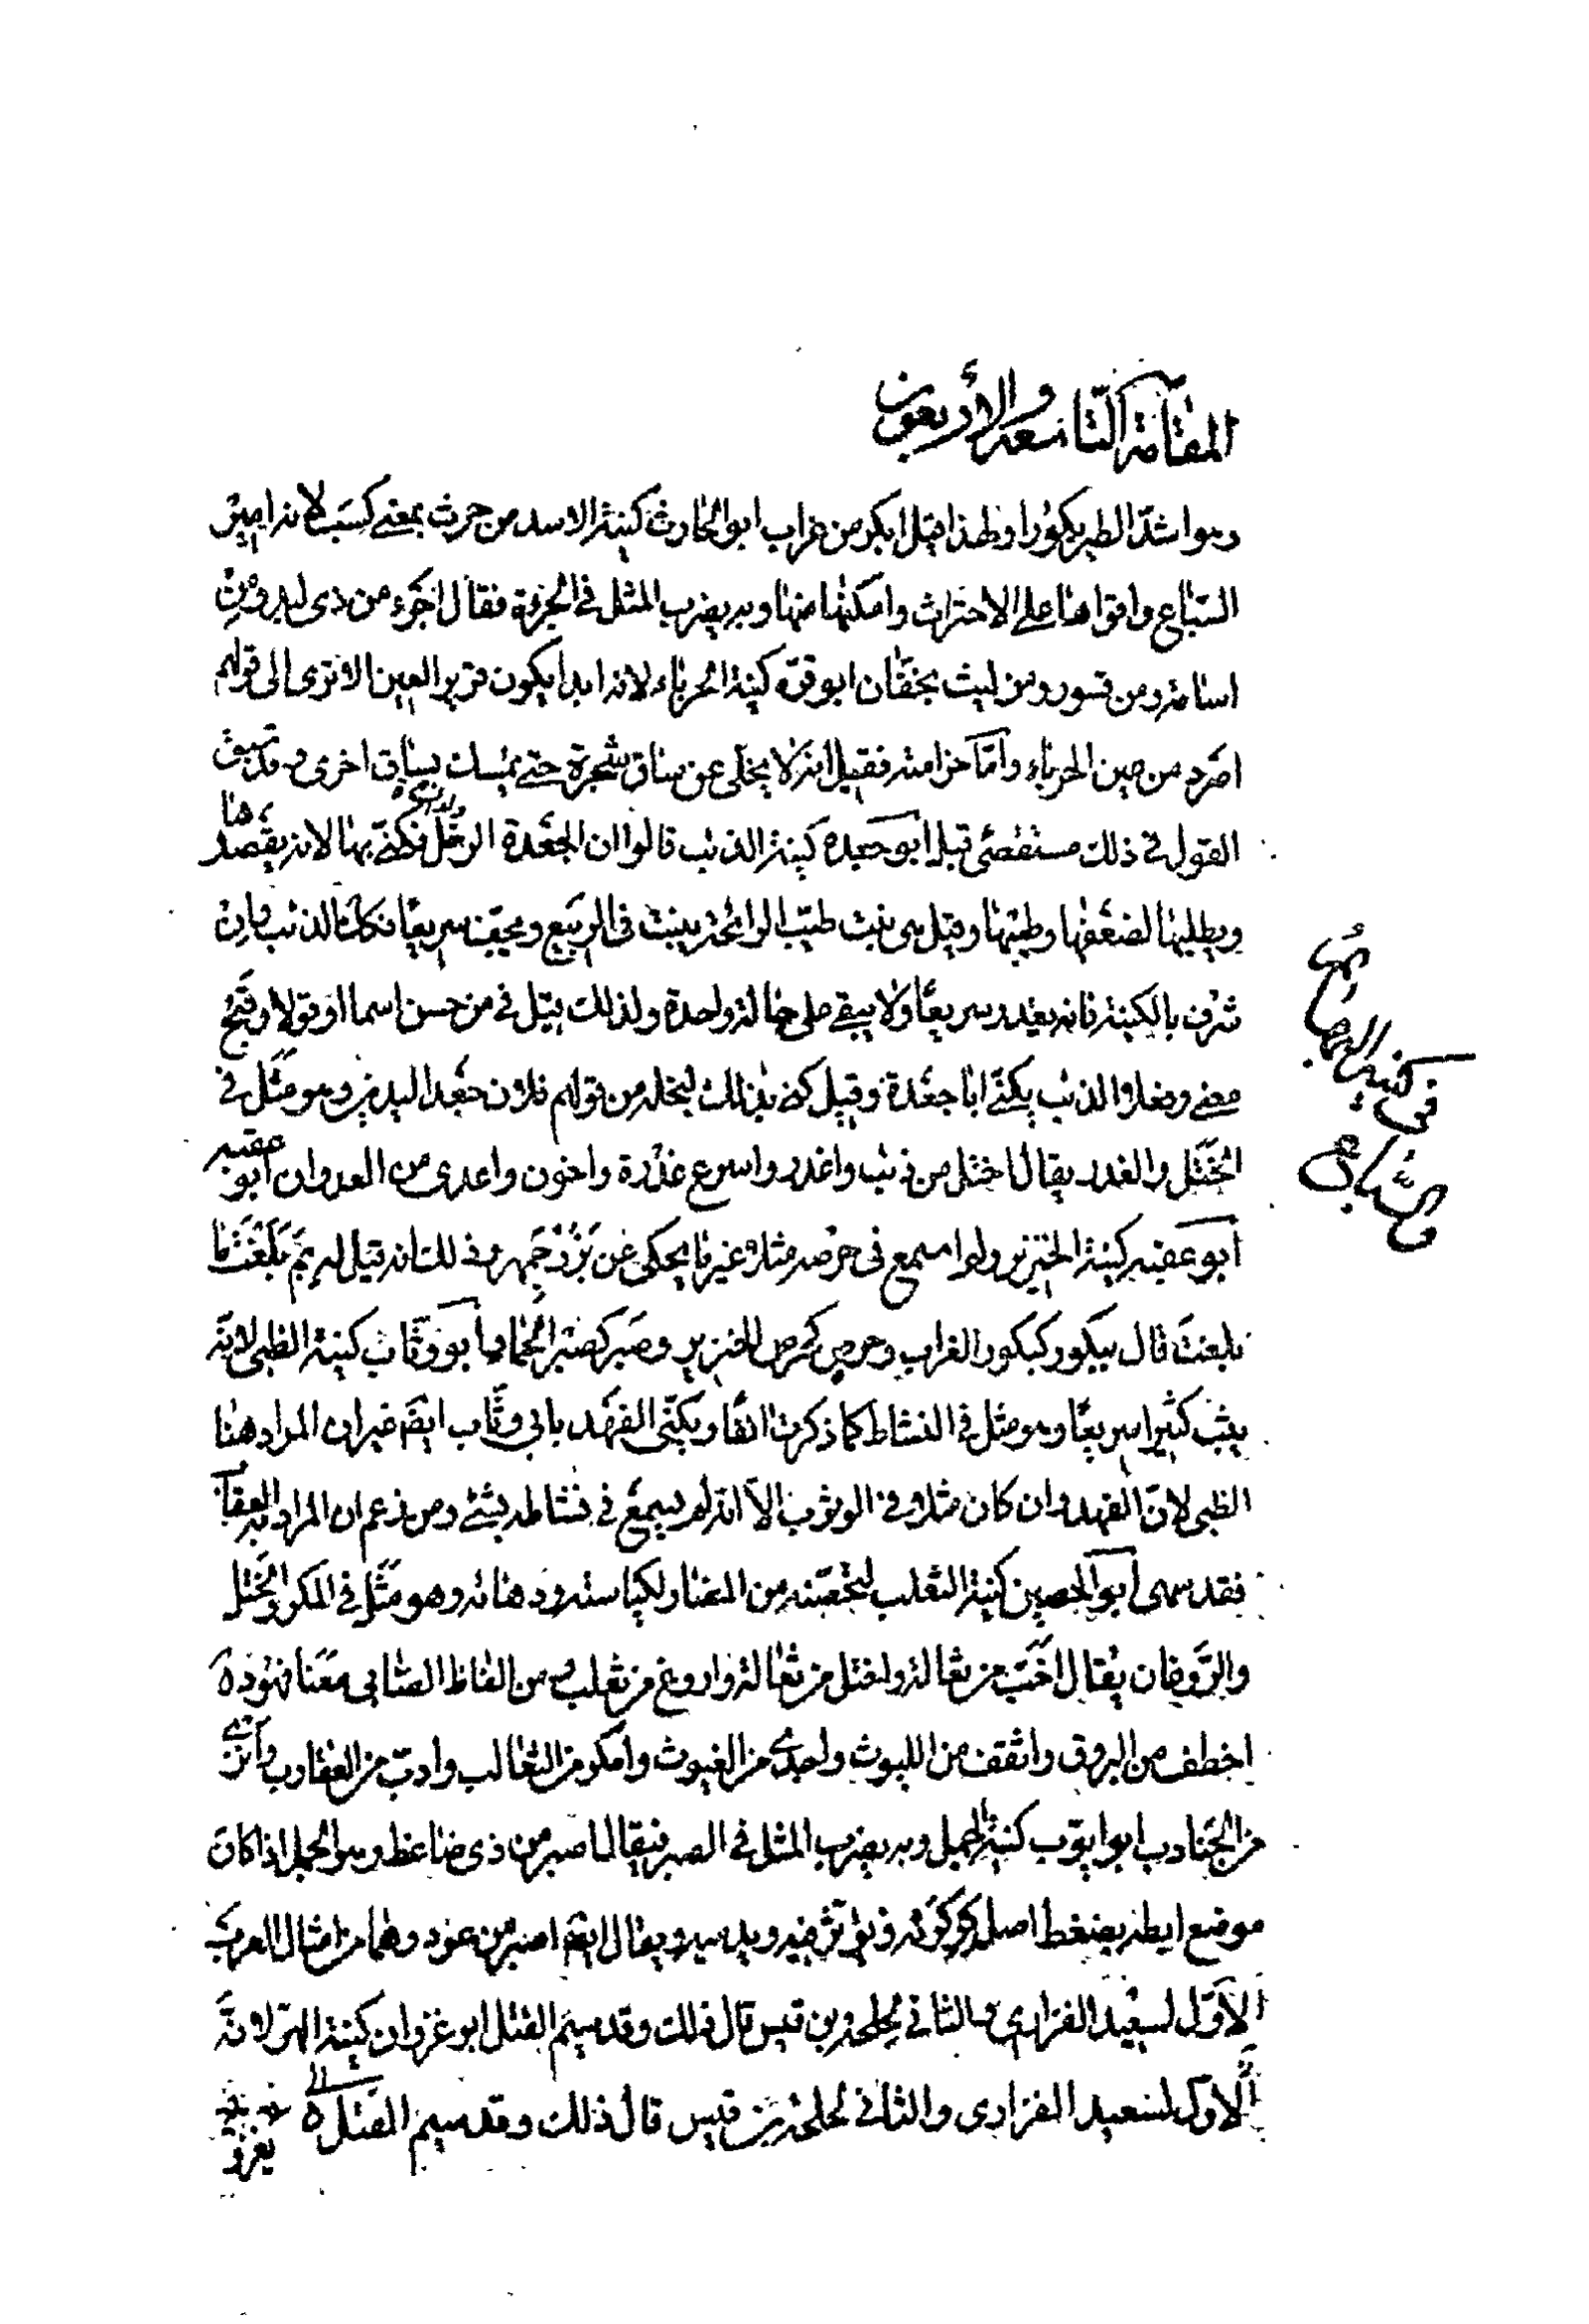 المقامة التاسعة والأربعون
وهو اشدّ الطير بكورا ولهذا قيل ابكر من غراب ابو الحارث كنية الاسد من حرث بمعنى كسب لانه امير
السّباع واقواها على الاحتراث وامكنها منها وبه يضرب المثل في الجرءة فقال اجرء من ذى لبد ومن
اسامة ومن قسور ومن ليث بخفّان ابو قرّة كنية الحرباء لانه ابدا يكون قرير العين الا ترى الى قولهم
اصرد من عين الحرباء وامّا حزامته فقيل انه لا يخلى عن ساق شجرة حتى يمسك بساق اخرى وقد سبق
القول في ذلك مستقصًى قبل ابو جعدة كنية الذئب قالوا ان الجعدة الرخل فكنّى بها لانه يقصدها
ويطلبها لضعفها وطيبها وقيل هى نبت طيّب الرائحة ينبت فى الربيع ويجف سريعًا فكان الذئب وان
شرف بالكنية فانه يغدر سريعًا ولا يبقى على حالة واحدة ولذلك قيل في من حسن اسما او قولا وقبح
معنى وفعلا والذئب يكنّى ابا جعدة وقيل كنى بذلك لبخله من قولهم فلان جعد اليدين وهو مثل فى
الختل والغدر يقال اختل من ذئب واغدر واسرع غدرة واخون واعدى من العدوان ابو عقبه
ابو عقبه كنية الخنزير ولم اسمع فى حرصه مثلا غير ما يحكى عن بزرجمهر وذلك انه قيل له بم بلغت ما
بلغت قال ببكور كبكور الغراب وحرص كحرص الخنزير وصبر كصبر الحمار ابو وثّاب كنية الظبى لانّه
يثب كثيرا سريعًا وهو مثل فى النشاط كما ذكرت انفًا ويكنّى الفهد بابي وثّاب ايضًا غير ان المراد هنا
الظبى لانّ الفهد وان كان مثلا فى الوثوب الا انه لم يسمع فى نشاطه بشئ ومن زعم ان المراد به العقاب
فقد سهى ابو الحصين كنية الثعلب لتحصّنه من المضار لكياسته ودهائه وهو مثل في المكر والختل
والرّوغان يقال اخبّ من ثعالة واختل من ثعالة واروغ من ثعلب ومن الفاظ الصّابى
اخطف من البروق واثقف من الليوث واجدى من الغيوث وامكر من الثعالب وادبّ من العقارب وانزى
من الجنادب ابو ايّوب كنية الجمل وبه يضرب المثل في الصبر فيقال اصبر من ذى ضاغط وهو الجمل اذا كان
موضع ابطه يضغط اصل كركرته فيؤثر فيه ويدميه ويقال ايضا اصبر من عود وهما من امثال العرب
الاوّل لسعيد الفزارى والثانى لحلحلة بن قيس قال ذلك وقد سيم القتل ابو غزوان كنية الهرّ لانّه
الاوّل لسعيد الفزارى والثانى لحلحلة بن قيس قال ذلك وقد سيم القتل
يغزو
فى كنية